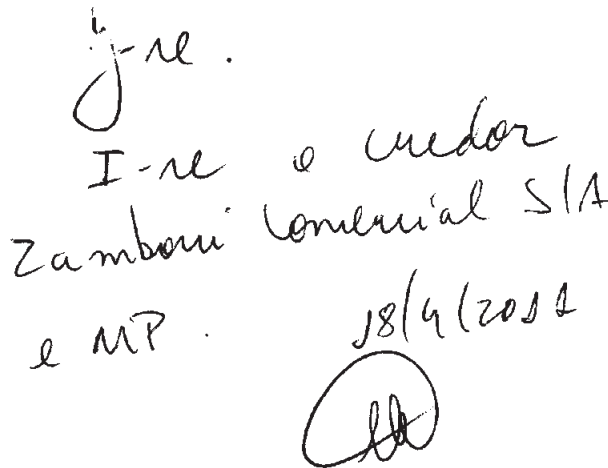 J-se.
I-se o credor
Zamboni Comercial S/A
e MP. 18/4/2011